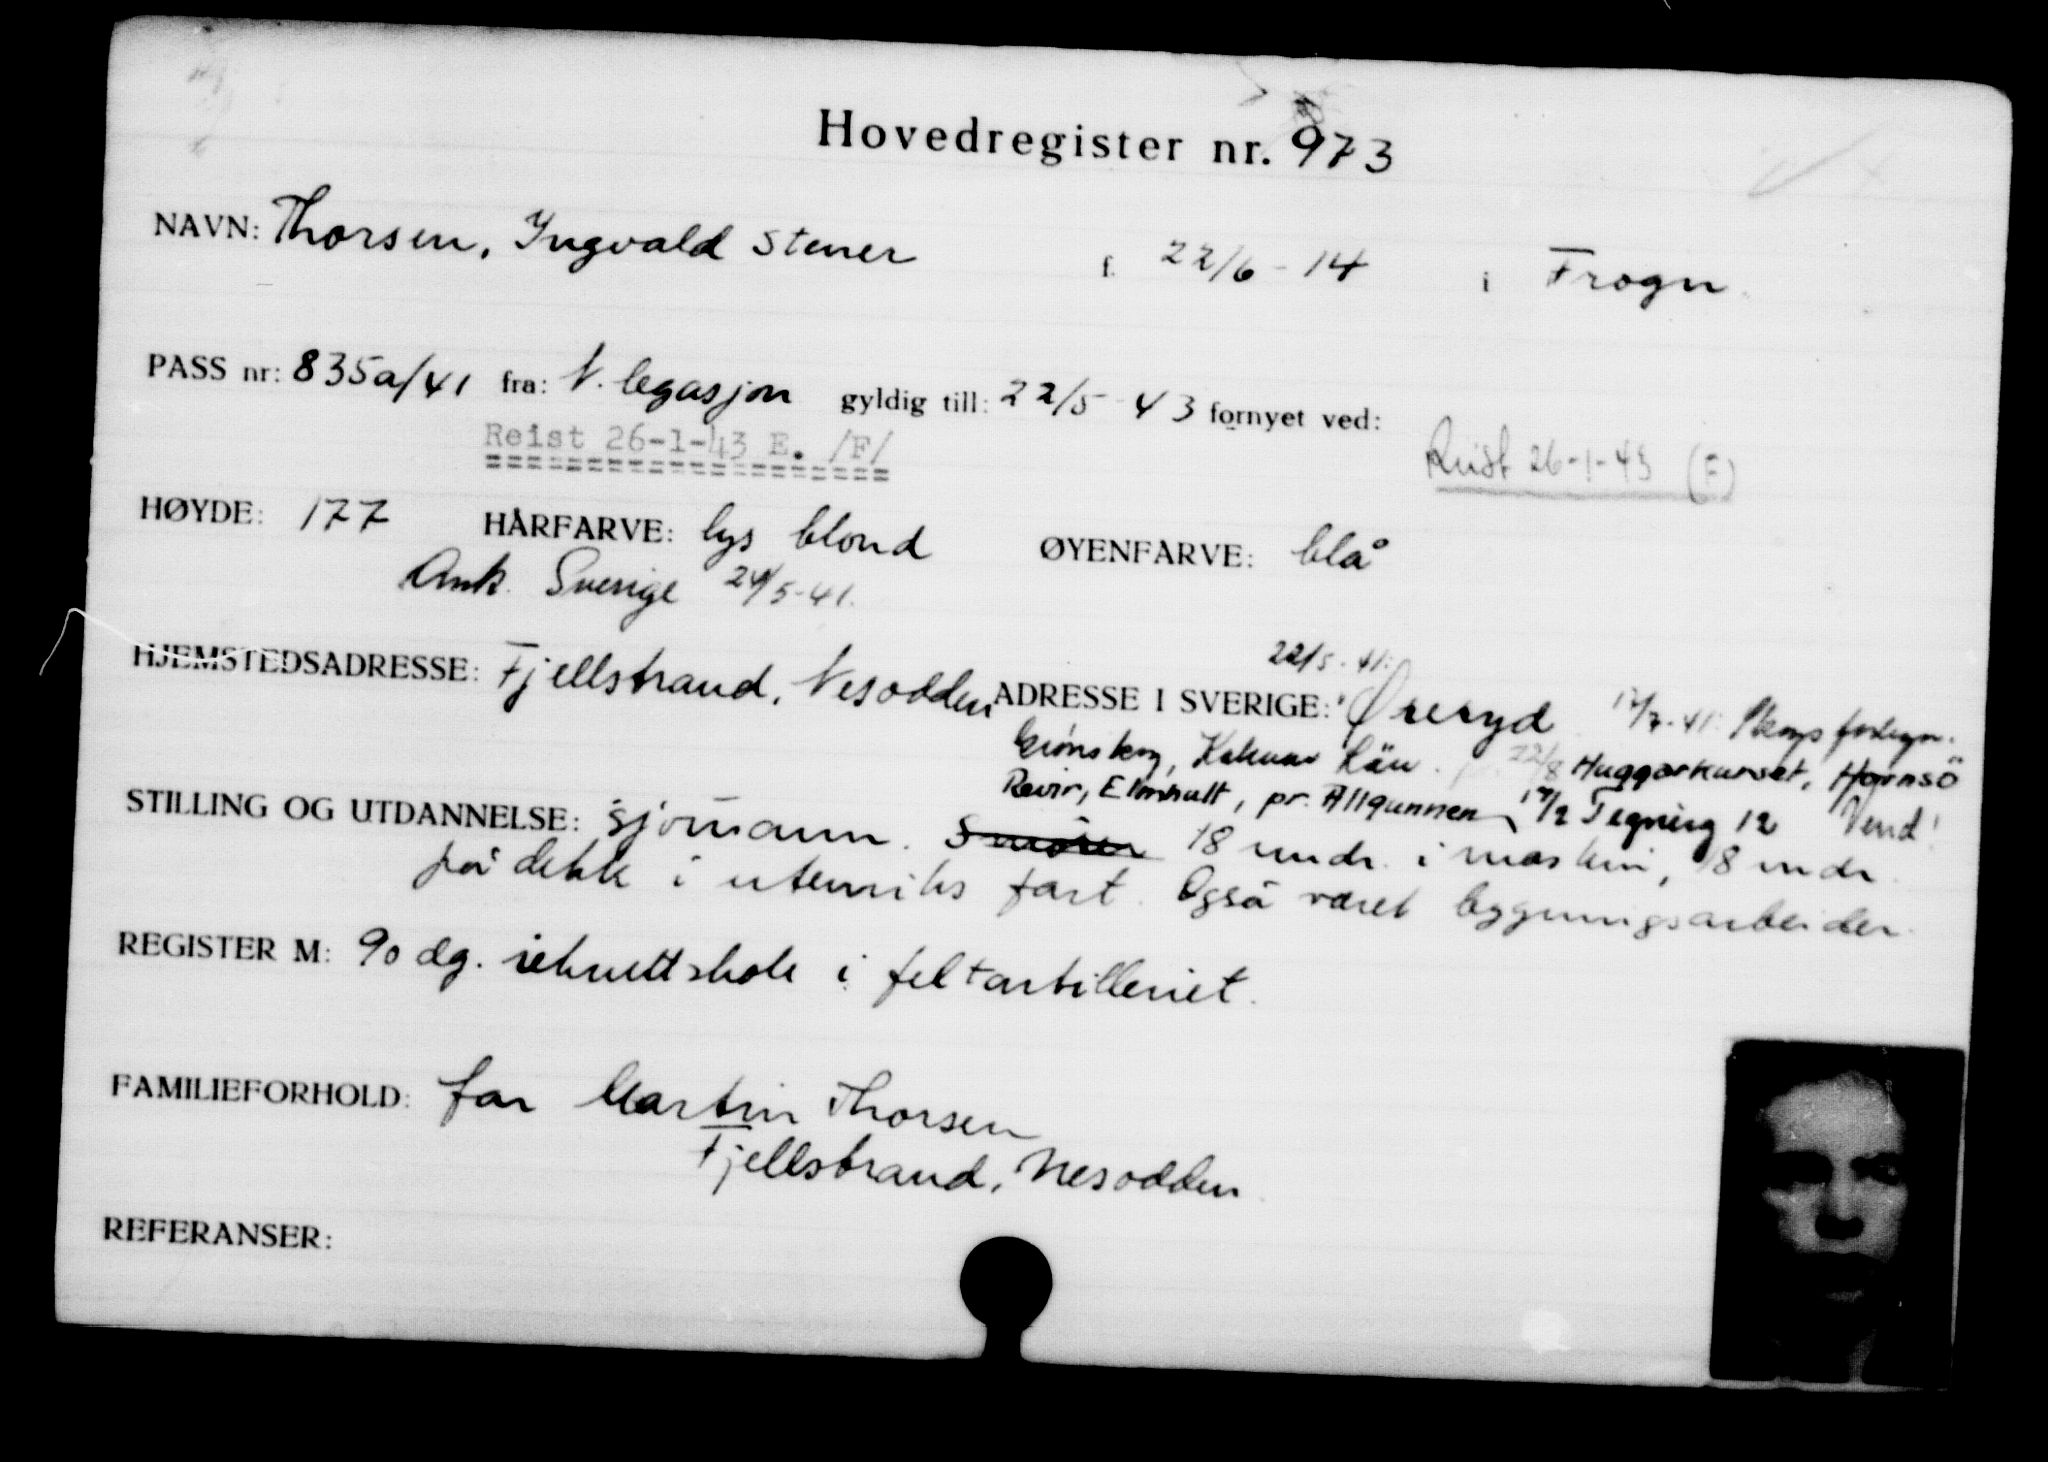 Hovedregister nr. 973
NAVN: Thorsen, Ingvald Stener f. 22/6-14 i Frogn
PASS nr: 835a/41 fra: N. legasjon gyldig till: 22/5-43 fornyet ved:
Reist 26-1-43 E. /F/
Reist 26-1-43 (F)
HØYDE: 177 HÅRFARVE: lys blond ØYENFARVE: blå
Ank. Sverige 24/5-41.
22/5-41:
HJEMSTEDSADRESSE: Fjellstrand, Nesodden ADRESSE I SVERIGE: Øreryd 17/7-41: Skogsforlegn.
Grönskog, Kalmar Län. 22/8 Huggarkurset, Hornsö
Revir, Elmhult, pr. Allgunnen, 17/2 Tegnérg 12 Vend!
STILLING OG UTDANNELSE: Sjömann. 18 mndr. i maskin, 18 mndr
på dekk i utenriks fart. Også været bygningsarbeider.
REGISTER M: 90 dg. rekruttskole i feltartilleriet.
FAMILIEFORHOLD: far Martin Thorsen
Fjellstrand, Nesodden
REFERANSER: